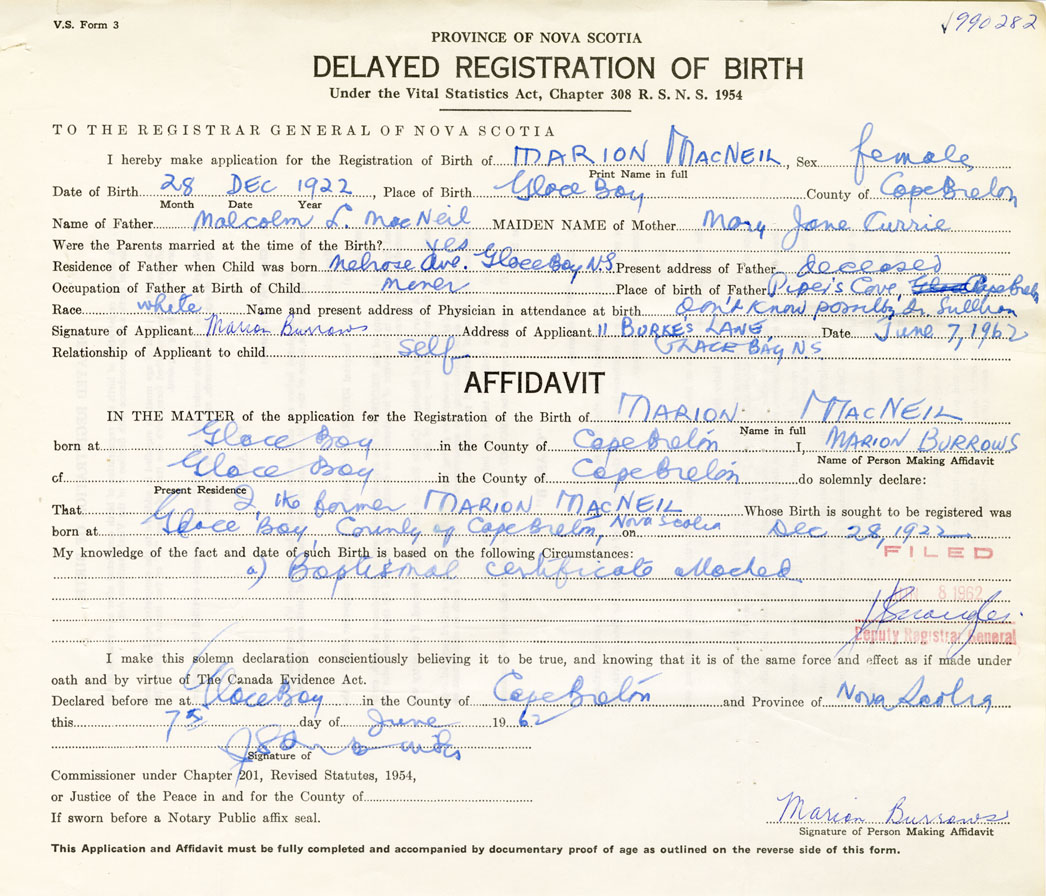 V.S. Form 3
990282
PROVINCE OF NOVA SCOTIA
DELAYED REGISTRATION OF BIRTH
Under the Vital Statistics Act, Chapter 308 R. S. N. S. 1954
TO THE REGISTRAR GENERAL OF NOVA SCOTIA
I hereby make application for the Registration of Birth of MARION MACNEIL, Sex female
Print Name in full
Date of Birth 28 DEC 1922, Place of Birth Glace Bay County of Cape Breton
Month Date Year
Name of Father Malcolm L. MacNeil MAIDEN NAME of Mother Mary Jane Currie
Were the Parents married at the time of the Birth? yes
Residence of Father when Child was born Melrose Ave. Glace Bay N.S. Present address of Father deceased
Occupation of Father at Birth of Child miner Place of birth of Father Piper's Cove, Cape Breton
Race white Name and present address of Physician in attendance at birth don't know possibly Dr. Sullivan
Signature of Applicant Marion Burrows Address of Applicant 11 BURKE'S LANE, Date June 7, 1962
GLACE BAY N.S
Relationship of Applicant to child self
AFFIDAVIT
IN THE MATTER of the application for the Registration of the Birth of MARION MACNEIL
Name in full
born at Glace Bay in the County of Cape Breton I, MARION BURROWS
Name of Person Making Affidavit
of Glace Bay in the County of Cape Breton do solemnly declare:
Present Residence
That I, the former MARION MACNEIL Whose Birth is sought to be registered was
born at Glace Bay, County of Cape Breton, Nova Scotia on Dec 28, 1922
My knowledge of the fact and date of such Birth is based on the following Circumstances:
FILED
a) Baptismal certificate attached.
8 1962
Deputy Registrar General
I make this solemn declaration conscientiously believing it to be true, and knowing that it is of the same force and effect as if made under
oath and by virtue of The Canada Evidence Act.
Declared before me at Glace Bay in the County of Cape Breton and Province of Nova Scotia
this 7th day of June 1962
Signature of
Commissioner under Chapter 201, Revised Statutes, 1954,
or Justice of the Peace in and for the County of
If sworn before a Notary Public affix seal.
Marion Burrows
Signature of Person Making Affidavit
This Application and Affidavit must be fully completed and accompanied by documentary proof of age as outlined on the reverse side of this form.